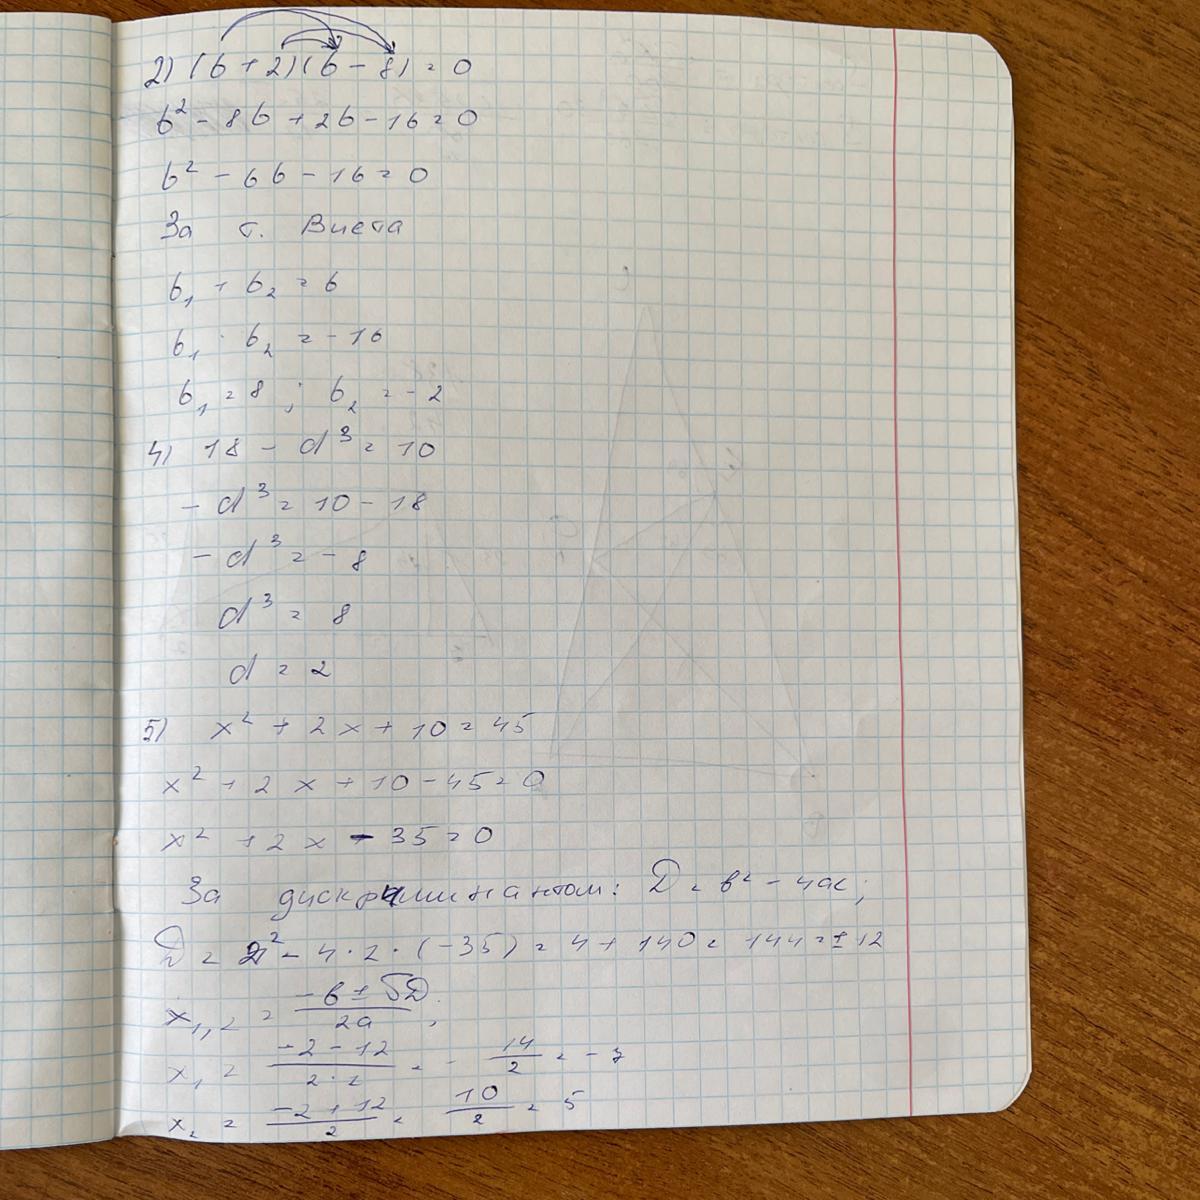 2) (b + 2)(b - 8) = 0
b² - 8b + 2b - 16 = 0
b² - 6b - 16 = 0
За т. Виета
b₁ + b₂ = 6
b₁ · b₂ = -16
b₁ = 8 ; b₂ = -2
4) 18 - d³ = 10
-d³ = 10 - 18
-d³ = -8
d³ = 8
d = 2
5) x² + 2x + 10 = 45
x² + 2x + 10 - 45 = 0
x² + 2x - 35 = 0
За дискриминантом: D = b² - 4ac;
D = 2² - 4·1·(-35) = 4 + 140 = 144 = ±12
x₁,₂ = (-b ± √D)/2a ;
x₁ = (-2 - 12)/(2·1) = -14/2 = -7
x₂ = (-2 + 12)/2 = 10/2 = 5